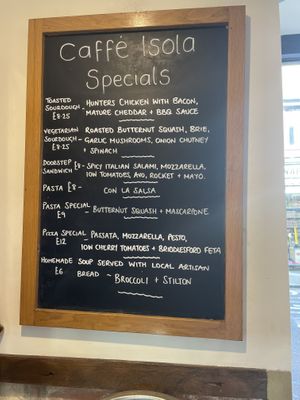 Caffé Isola
Specials
TOASTED SOURDOUGH - HUNTERS CHICKEN WITH BACON,
£8.25 MATURE CHEDDAR + BBQ SAUCE
VEGETARIAN ROASTED BUTTERNUT SQUASH, BRIE,
SOURDOUGH - GARLIC MUSHROOMS, ONION CHUTNEY
£8.25 + SPINACH
DOORSTEP £8 - SPICY ITALIAN SALAMI, MOZZARELLA,
SANDWICH IOW TOMATOES, AVO, ROCKET + MAYO.
PASTA £8 - CON LA SALSA
PASTA SPECIAL - BUTTERNUT SQUASH + MASCARPONE
£9
PIZZA SPECIAL PASSATA, MOZZARELLA, PESTO,
£12 IOW CHERRY TOMATOES + BRIDDLESFORD FETA
HOMEMADE SOUP SERVED WITH LOCAL ARTISAN
£6 BREAD ~ BROCCOLI + STILTON